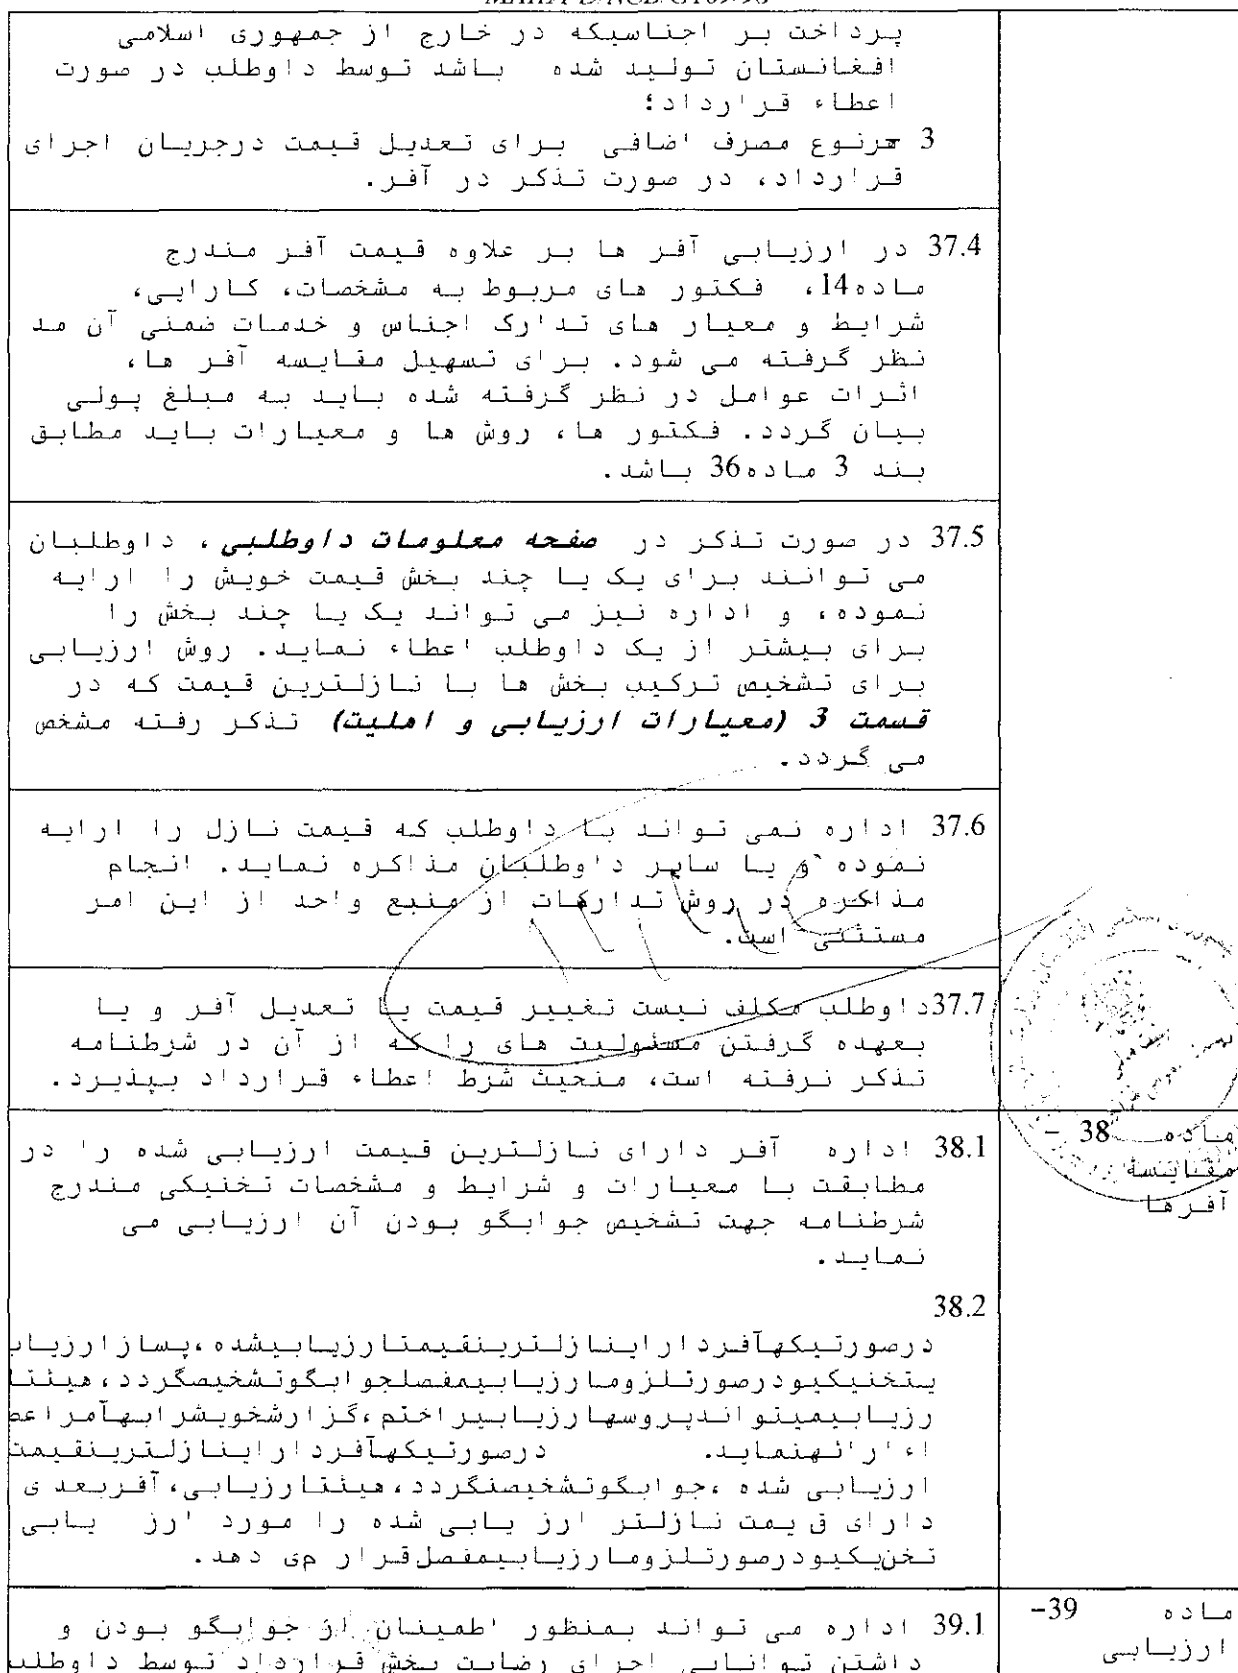 پرداخت بر اجناسیکه در خارج از جمهوری اسلامی
افغانستان تولید شده باشد توسط داوطلب در صورت
اعطاء قرارداد؛
3 هرنوع مصرف اضافی برای تعدیل قیمت درجریان اجرای
قرارداد، در صورت تذکر در آفر.
37.4 در ارزیابی آفر ها بر علاوه قیمت آفر مندرج
ماده14، فکتور های مربوط به مشخصات، کارایی،
شرایط و معیار های تدارک اجناس و خدمات ضمنی آن مد
نظر گرفته می شود. برای تسهیل مقایسه آفر ها،
اثرات عوامل در نظر گرفته شده باید به مبلغ پولی
بیان گردد. فکتور ها، روش ها و معیارات باید مطابق
بند 3 ماده36 باشد.
37.5 در صورت تذکر در صفحه معلومات داوطلبی، داوطلبان
می توانند برای یک یا چند بخش قیمت خویش را ارایه
نموده، و اداره نیز می تواند یک یا چند بخش را
برای بیشتر از یک داوطلب اعطاء نماید. روش ارزیابی
برای تشخیص ترکیب بخش ها با نازلترین قیمت که در
قسمت 3 (معیارات ارزیابی و اهلیت) تذکر رفته مشخص
می گردد.
37.6 اداره نمی تواند با داوطلب که قیمت نازل را ارایه
نموده و یا سایر داوطلبان مذاکره نماید. انجام
مذاکره در روش تدارکات از منبع واحد از این امر
مستثنی است.
37.7داوطلب مکلف نیست تغییر قیمت یا تعدیل آفر و یا
بعهده گرفتن مسئولیت های را که از آن در شرطنامه
تذکر نرفته است، منحیث شرط اعطاء قرارداد بپذیرد.
ماده 38 -
مقایسۀ
آفرها
38.1 اداره آفر دارای نازلترین قیمت ارزیابی شده را در
مطابقت با معیارات و شرایط و مشخصات تخنیکی مندرج
شرطنامه جهت تشخیص جوابگو بودن آن ارزیابی می
نماید.
38.2
درصورتیکهآفرداراینازلترینقیمتارزیابیشده،پسازارزیاب
یتخنیکیودرصورتلزومارزیابیمفصلجوابگوتشخیصگردد،هیئتا
رزیابیمیتواندپروسهارزیابیراختم،گزارشخویشرابهآمراعط
اء ارائهنماید. درصورتیکهآفرداراینازلترینقیمت
ارزیابی شده ،جوابگوتشخیصنگردد،هیئتارزیابی،آفربعد ی
دارای ق یمت نازلتر ارز یابی شده را مورد ارز یابی
تخنیکیودرصورتلزومارزیابیمفصلقرار می دهد.
ماده 39-
ارزیابی
39.1 اداره می تواند بمنظور اطمینان از جوابگو بودن و
داشتن توانایی اجرای رضایت بخش قرارداد توسط داوطلب